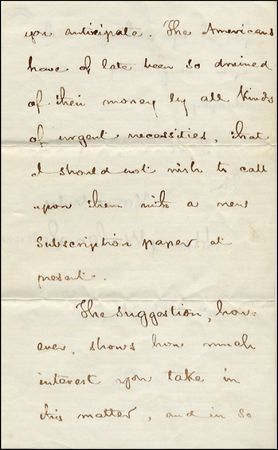 you anticipate. The Americans
have of late been so drained
of their money by all kinds
of urgent necessities, that
I should not wish to call
upon them with a new
subscription paper at
present.
The suggestion, how-
ever, shows how much
interest you take in
this matter, and in so